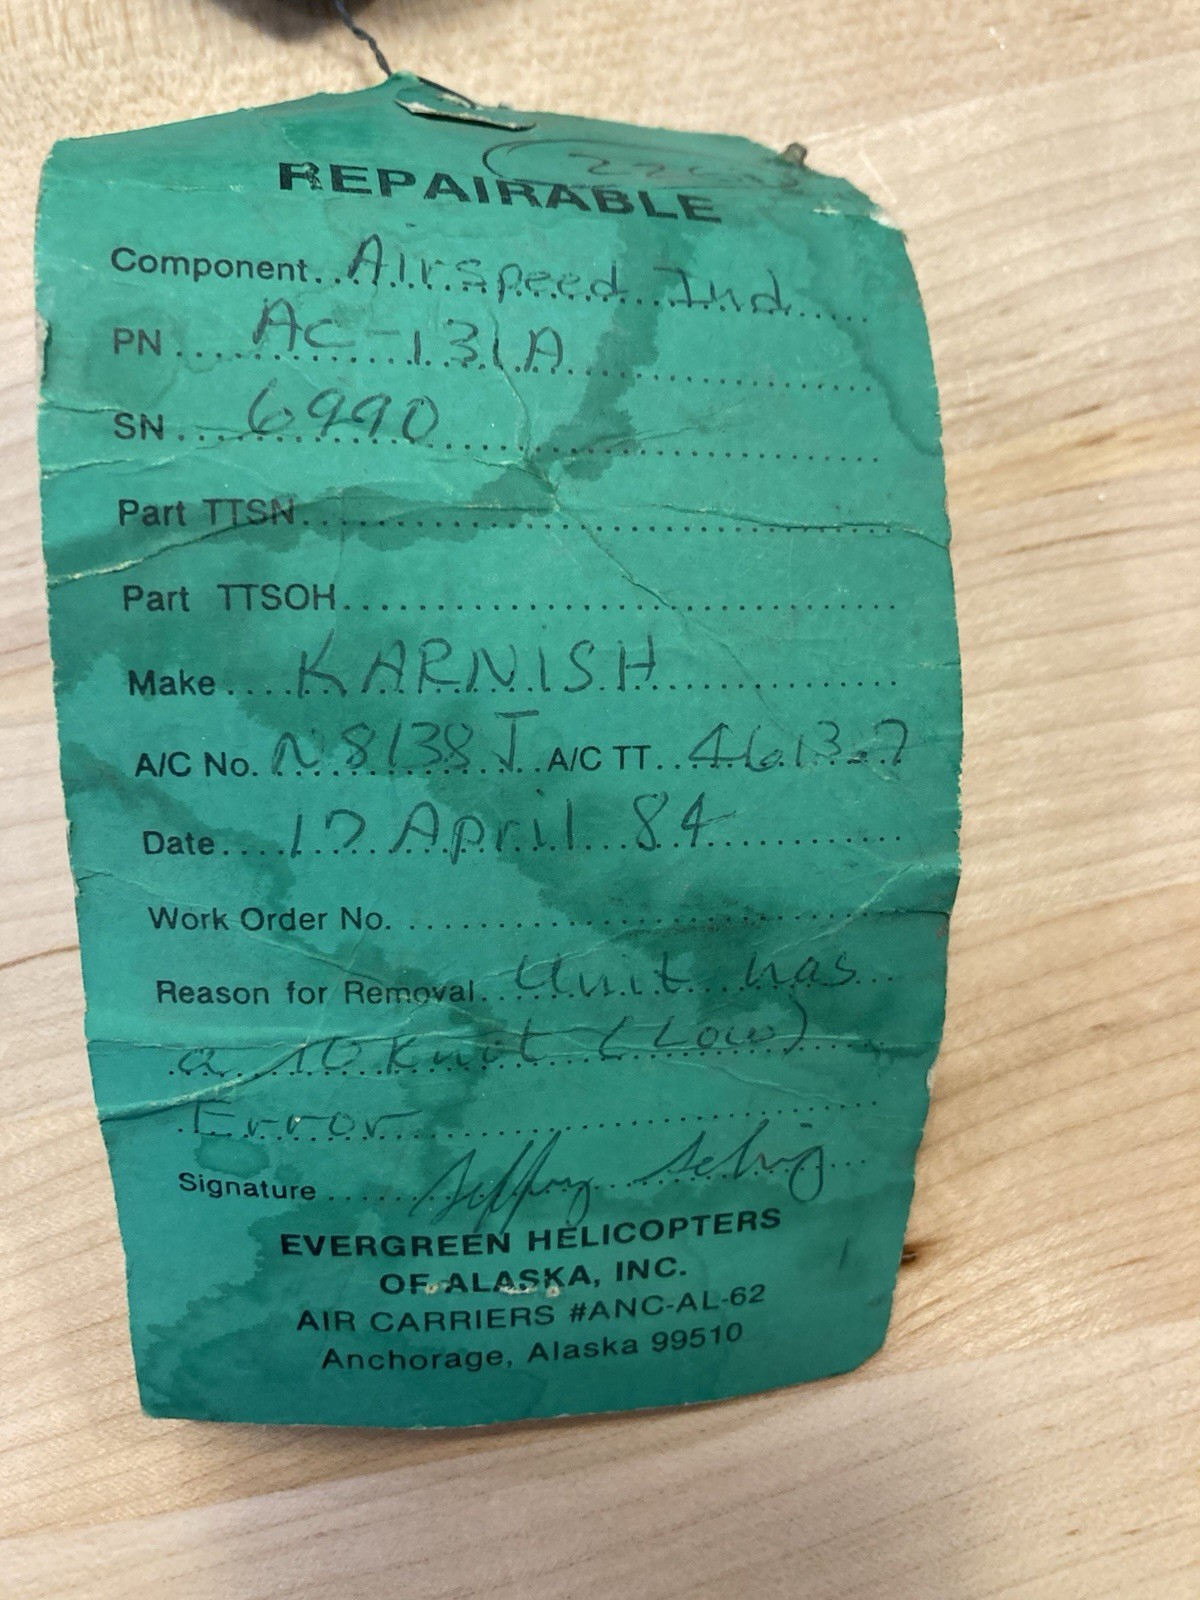 REPAIRABLE
Component.. Airspeed Ind
PN.. AC-131A
SN.. 6990
Part TTSN
Part TTSOH
Make.. KARNISH
A/C No. N8138J A/C TT.. 4613.7
Date.. 17 April 84
Work Order No.
Reason for Removal.. Unit has
a 10 Knot (Low)
Error
Signature
EVERGREEN HELICOPTERS
OF ALASKA, INC.
AIR CARRIERS #ANC-AL-62
Anchorage, Alaska 99510